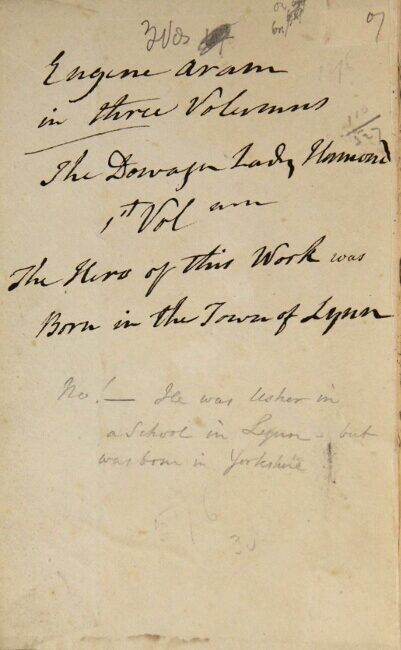 3 Vos
Eugene Aram
in three Volumns
The Dowager Lady Hamond
1st Vol umn
The Hero of this Work was
Born in the Town of Lynn
No! — He was Usher in
a School in Lynn - but
was born in Yorkshire
30